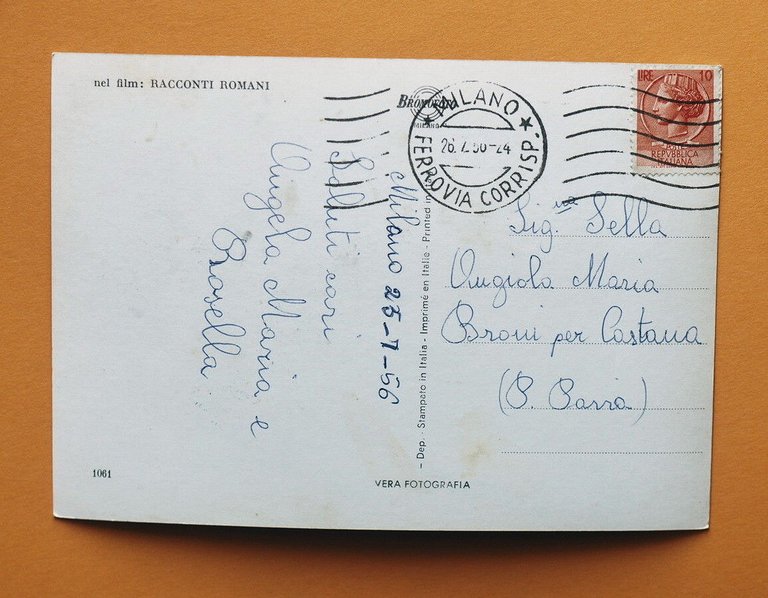 nel film: RACCONTI ROMANI
BROMOFOTO
MILANO
MILANO
FERROVIA CORRISP.
26.7.56-24
LIRE 10
REPVBBLICA
ITALIANA
Milano 25-7-56
Saluti cari
Angela Maria e
Rosella
- Dep. - Stampato in Italia - Imprimé en Italie - Printed in
Sig.na Sella
Angiola Maria
Broni per Castana
(P. Pavia)
1061
VERA FOTOGRAFIA